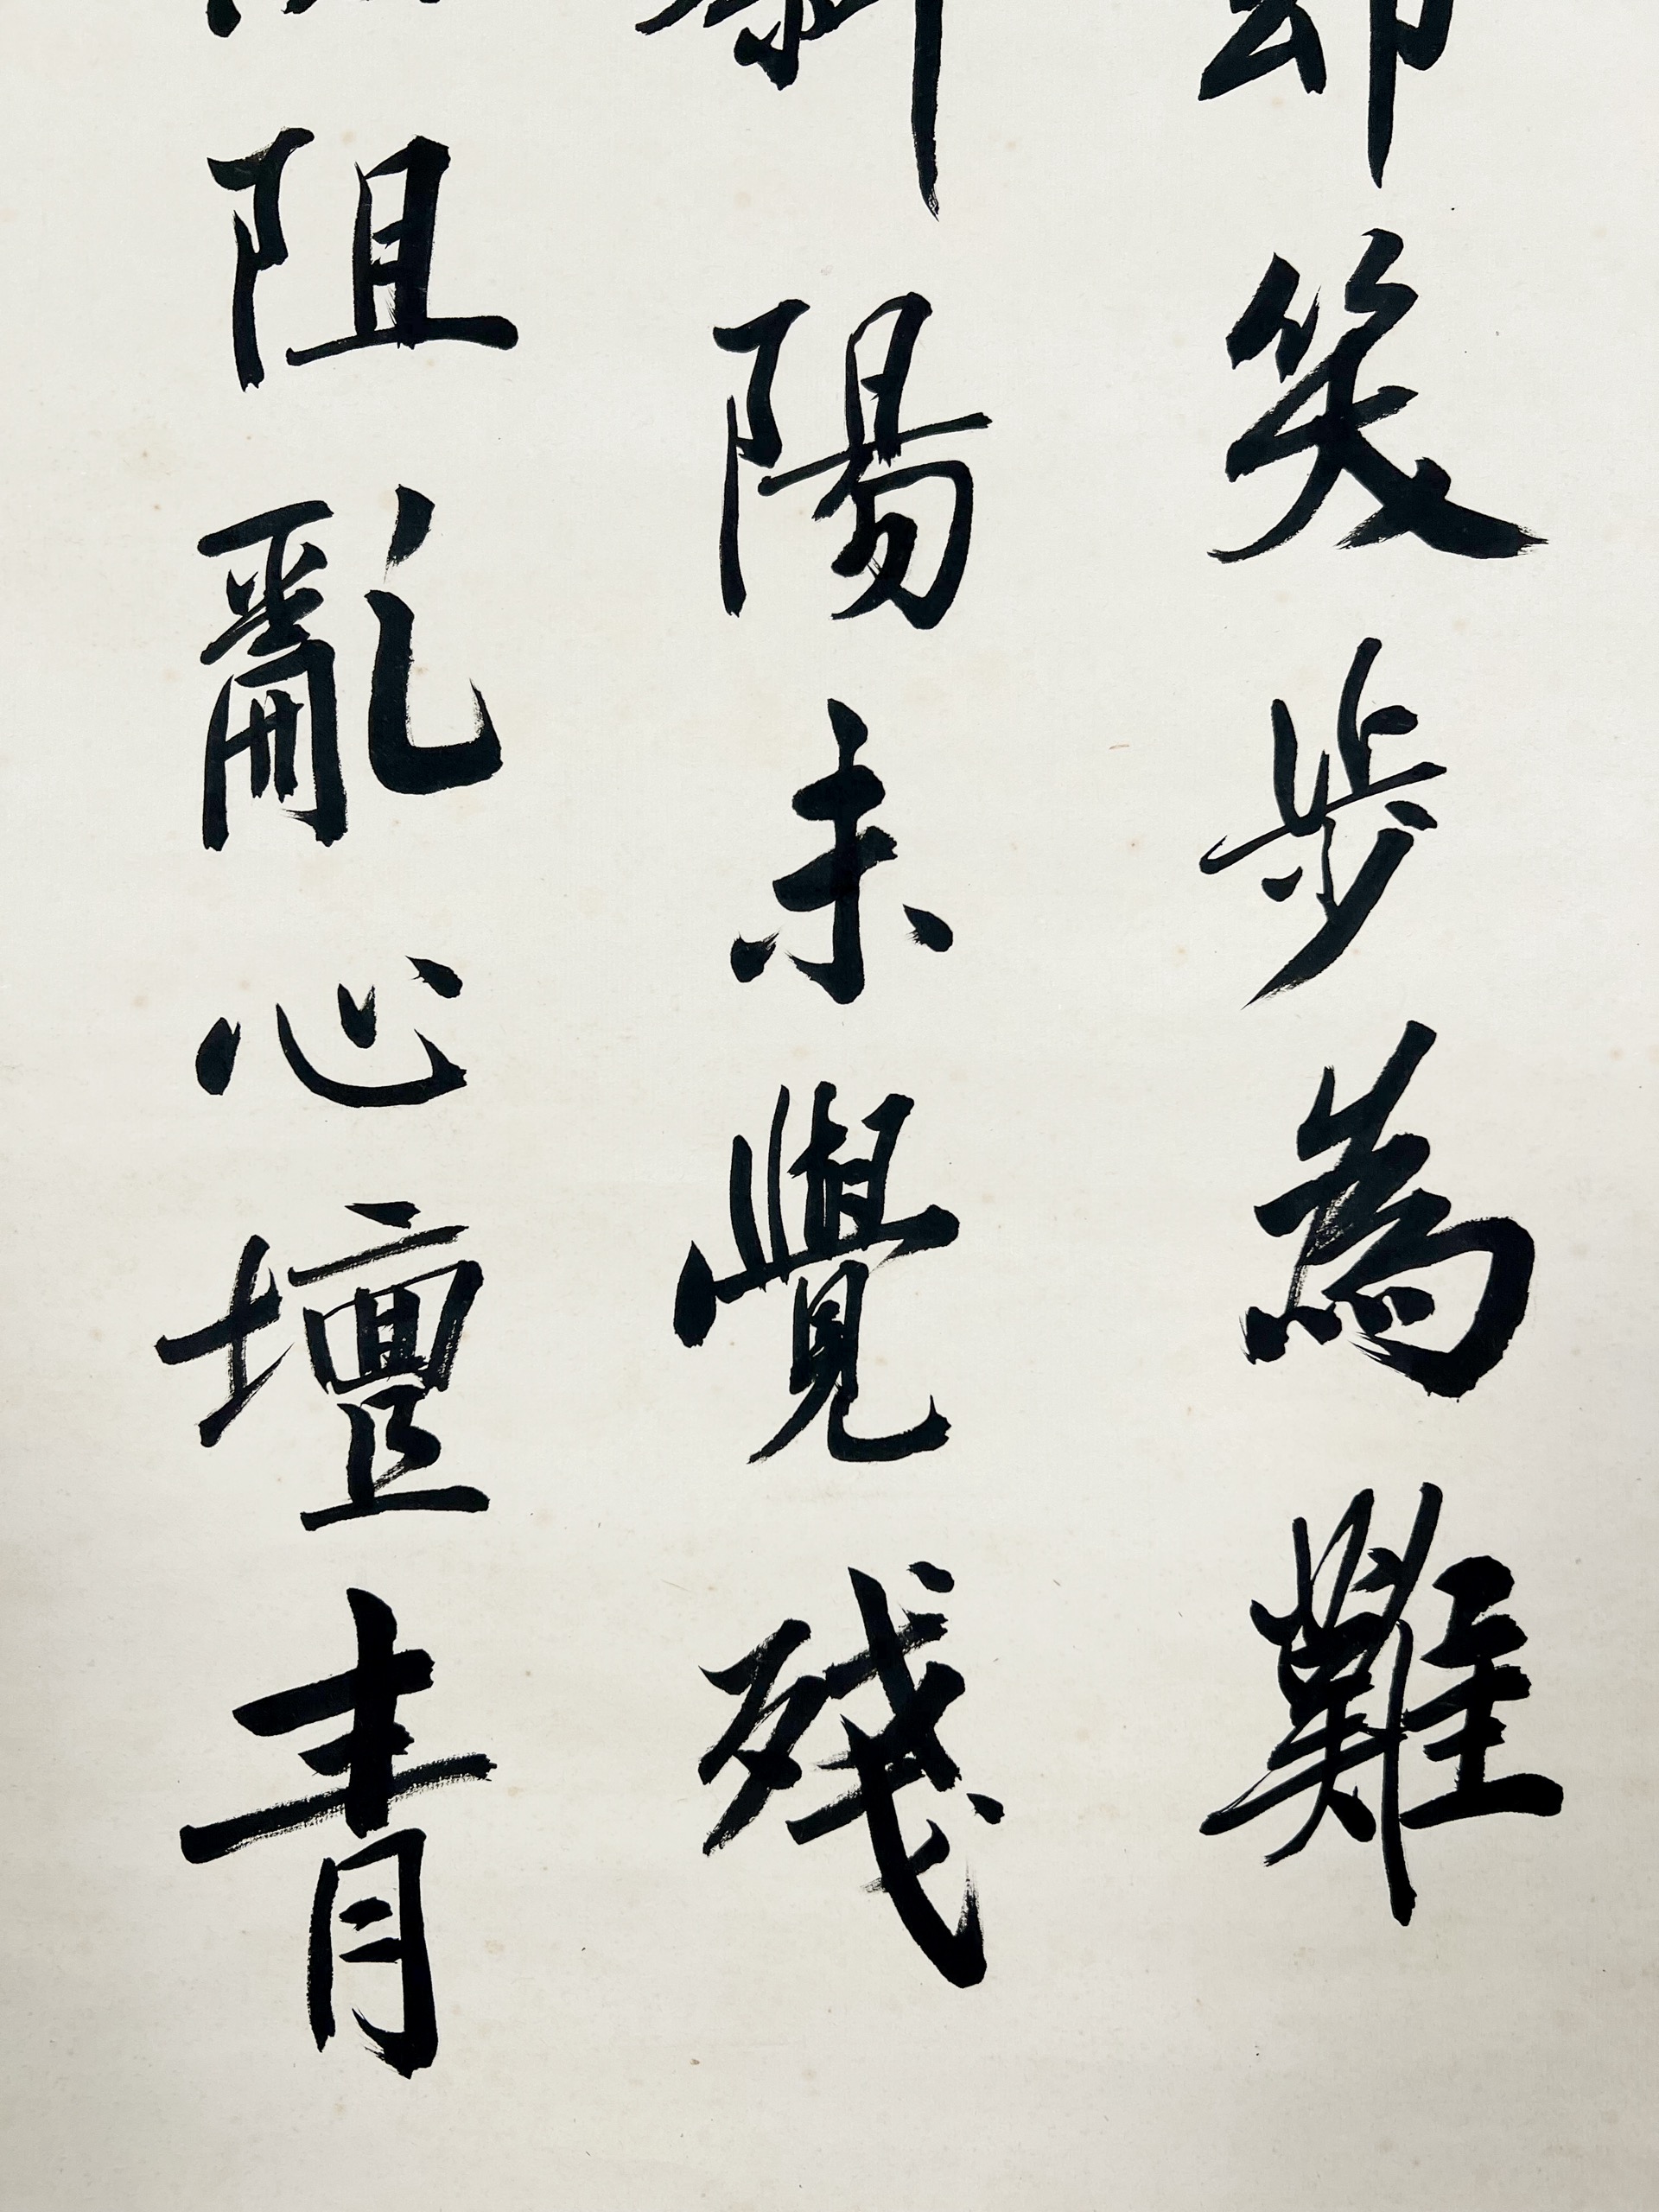 却笑步為難
斜陽未覺殘
阻亂心壇青